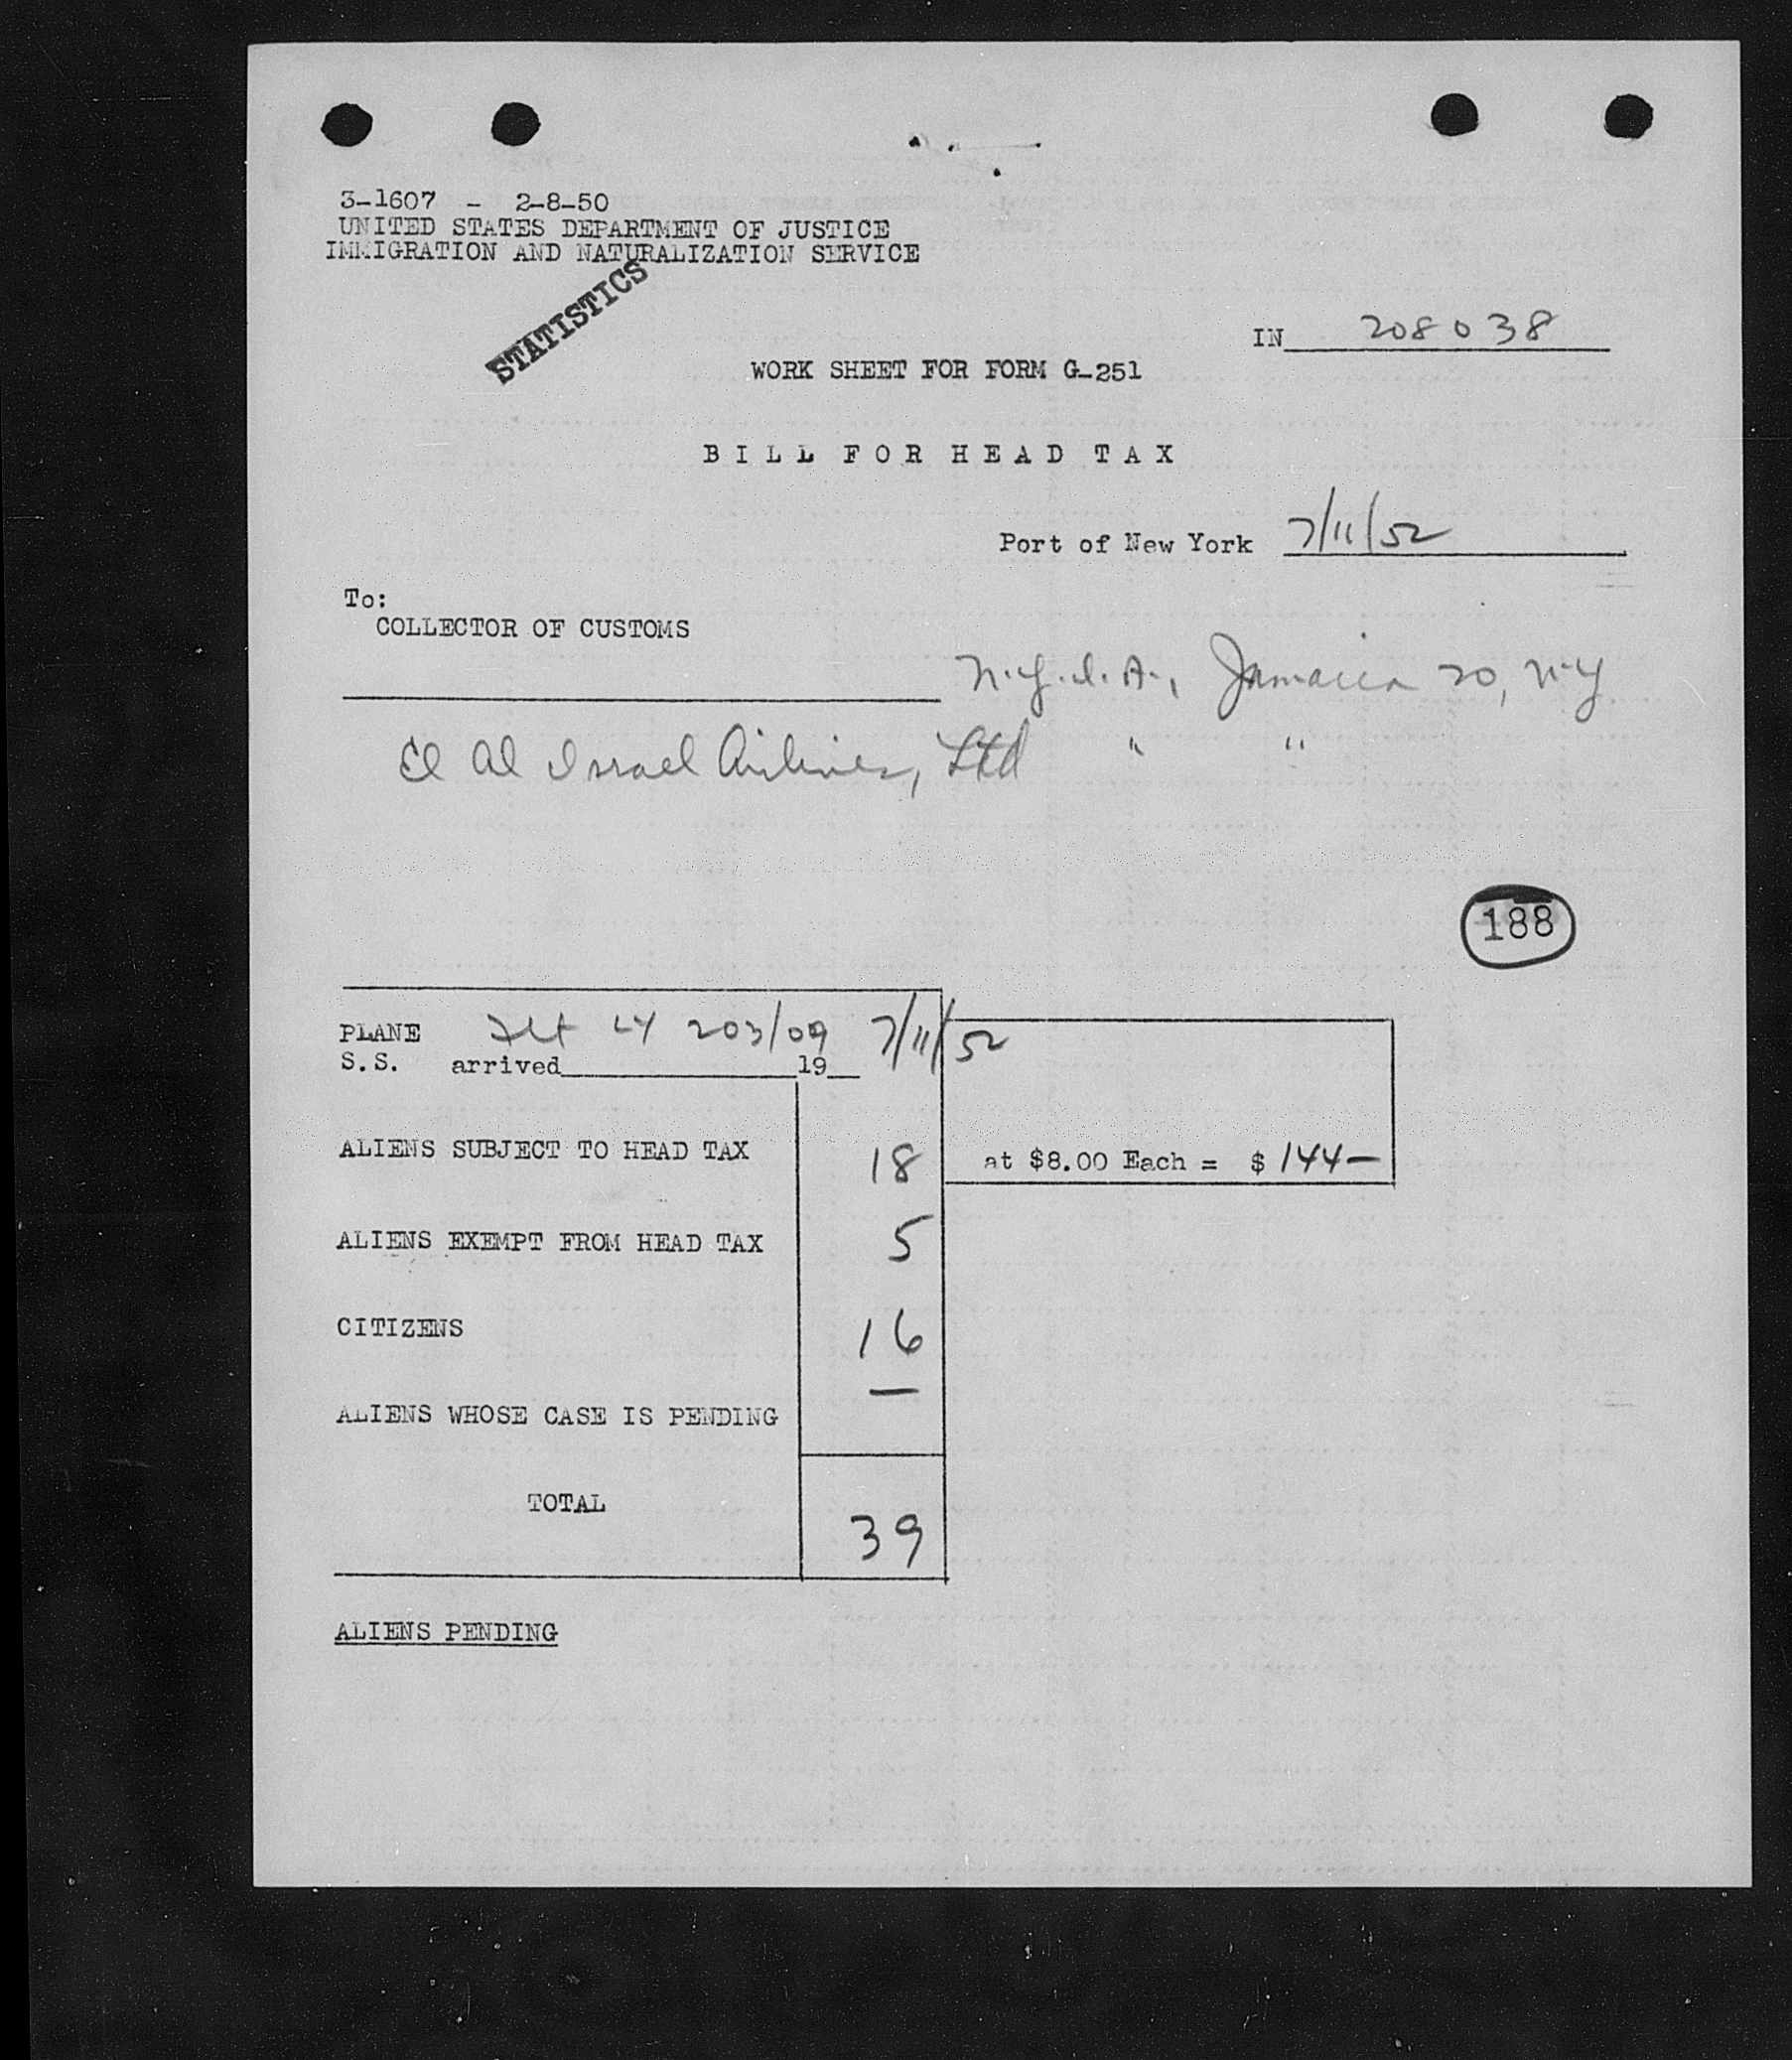 3-1607 - 2-8-50
UNITED STATES DEPARTMENT OF JUSTICE
IMMIGRATION AND NATURALIZATION SERVICE
STATISTICS
IN 208038
WORK SHEET FOR FORM G-251
BILL FOR HEAD TAX
Port of New York 7/11/52
To:
COLLECTOR OF CUSTOMS
N.Y.I.A., Jamaica 20, N.Y
El Al Israel Airlines, Ltd " "
188
PLANE Flt LY 203/09 7/11/52
S.S. arrived 19
ALIENS SUBJECT TO HEAD TAX 18 at $8.00 Each = $ 144—
ALIENS EXEMPT FROM HEAD TAX 5
CITIZENS 16
ALIENS WHOSE CASE IS PENDING —
TOTAL 39
ALIENS PENDING